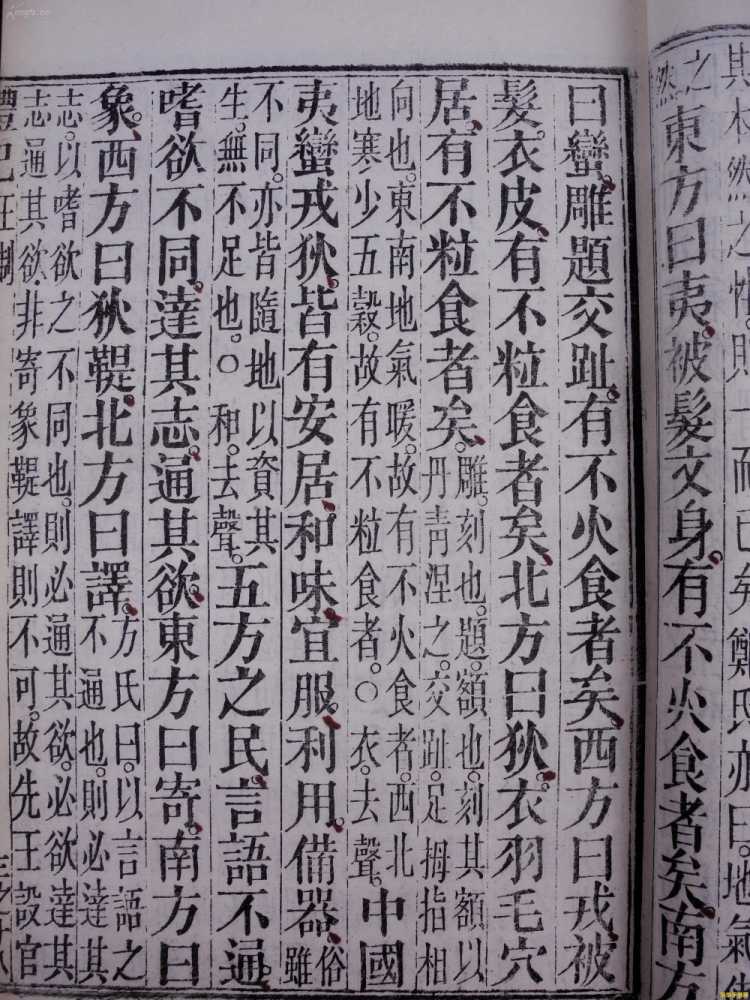 其本然之性。則一而已矣。鄭氏亦曰。地氣
之
然
東方曰夷。被髮文身。有不火食者矣。南方
曰蠻。雕題交趾。有不火食者矣。西方曰戎。被
髮。衣皮。有不粒食者矣。北方曰狄。衣羽毛穴
居。有不粒食者矣。
雕。刻也。題。額也。刻其額以
丹青涅之。交趾。足拇指相
向也。東南地氣暖。故有不火食者。西北
地寒少五穀。故有不粒食者。○衣。去聲。
中國
夷蠻戎狄。皆有安居。和味。宜服。利用。備器。
俗
雖
不同。亦皆隨地以資其
生。無不足也。○和。去聲。
五方之民。言語不通。
嗜欲不同。達其志。通其欲。東方曰寄。南方曰
象。西方曰狄鞮。北方曰譯。
方氏曰。以言語之
不通也。則必達其
志。以嗜欲之不同也。則必通其欲。必欲達其
志通其欲。非寄象鞮譯則不可。故先王設官
禮記王制